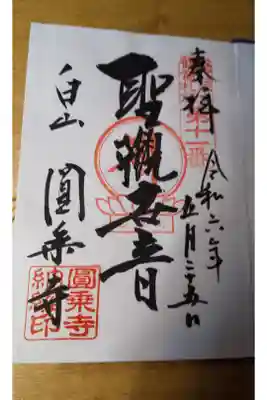 奉拝
第十一番
令和六年
五月二十五日
聖観世音
白山
圓乗寺
圓乗寺
納経印